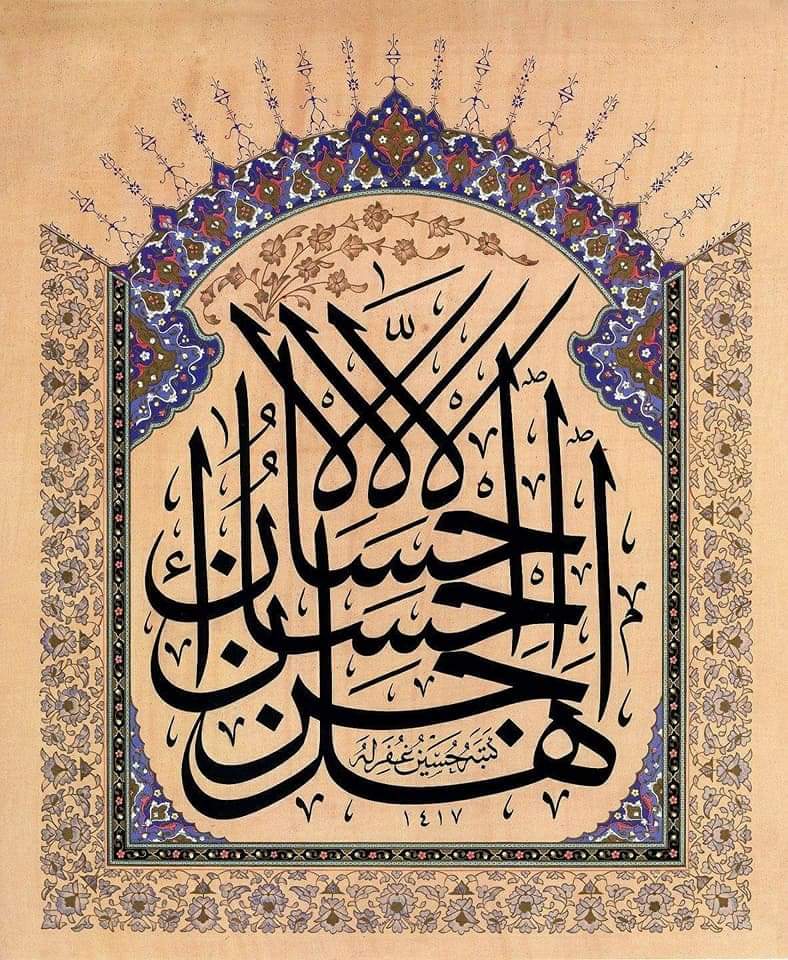 هل جزاء الاحسان الا الاحسان
كتبه حسين غفر له
١٤١٧